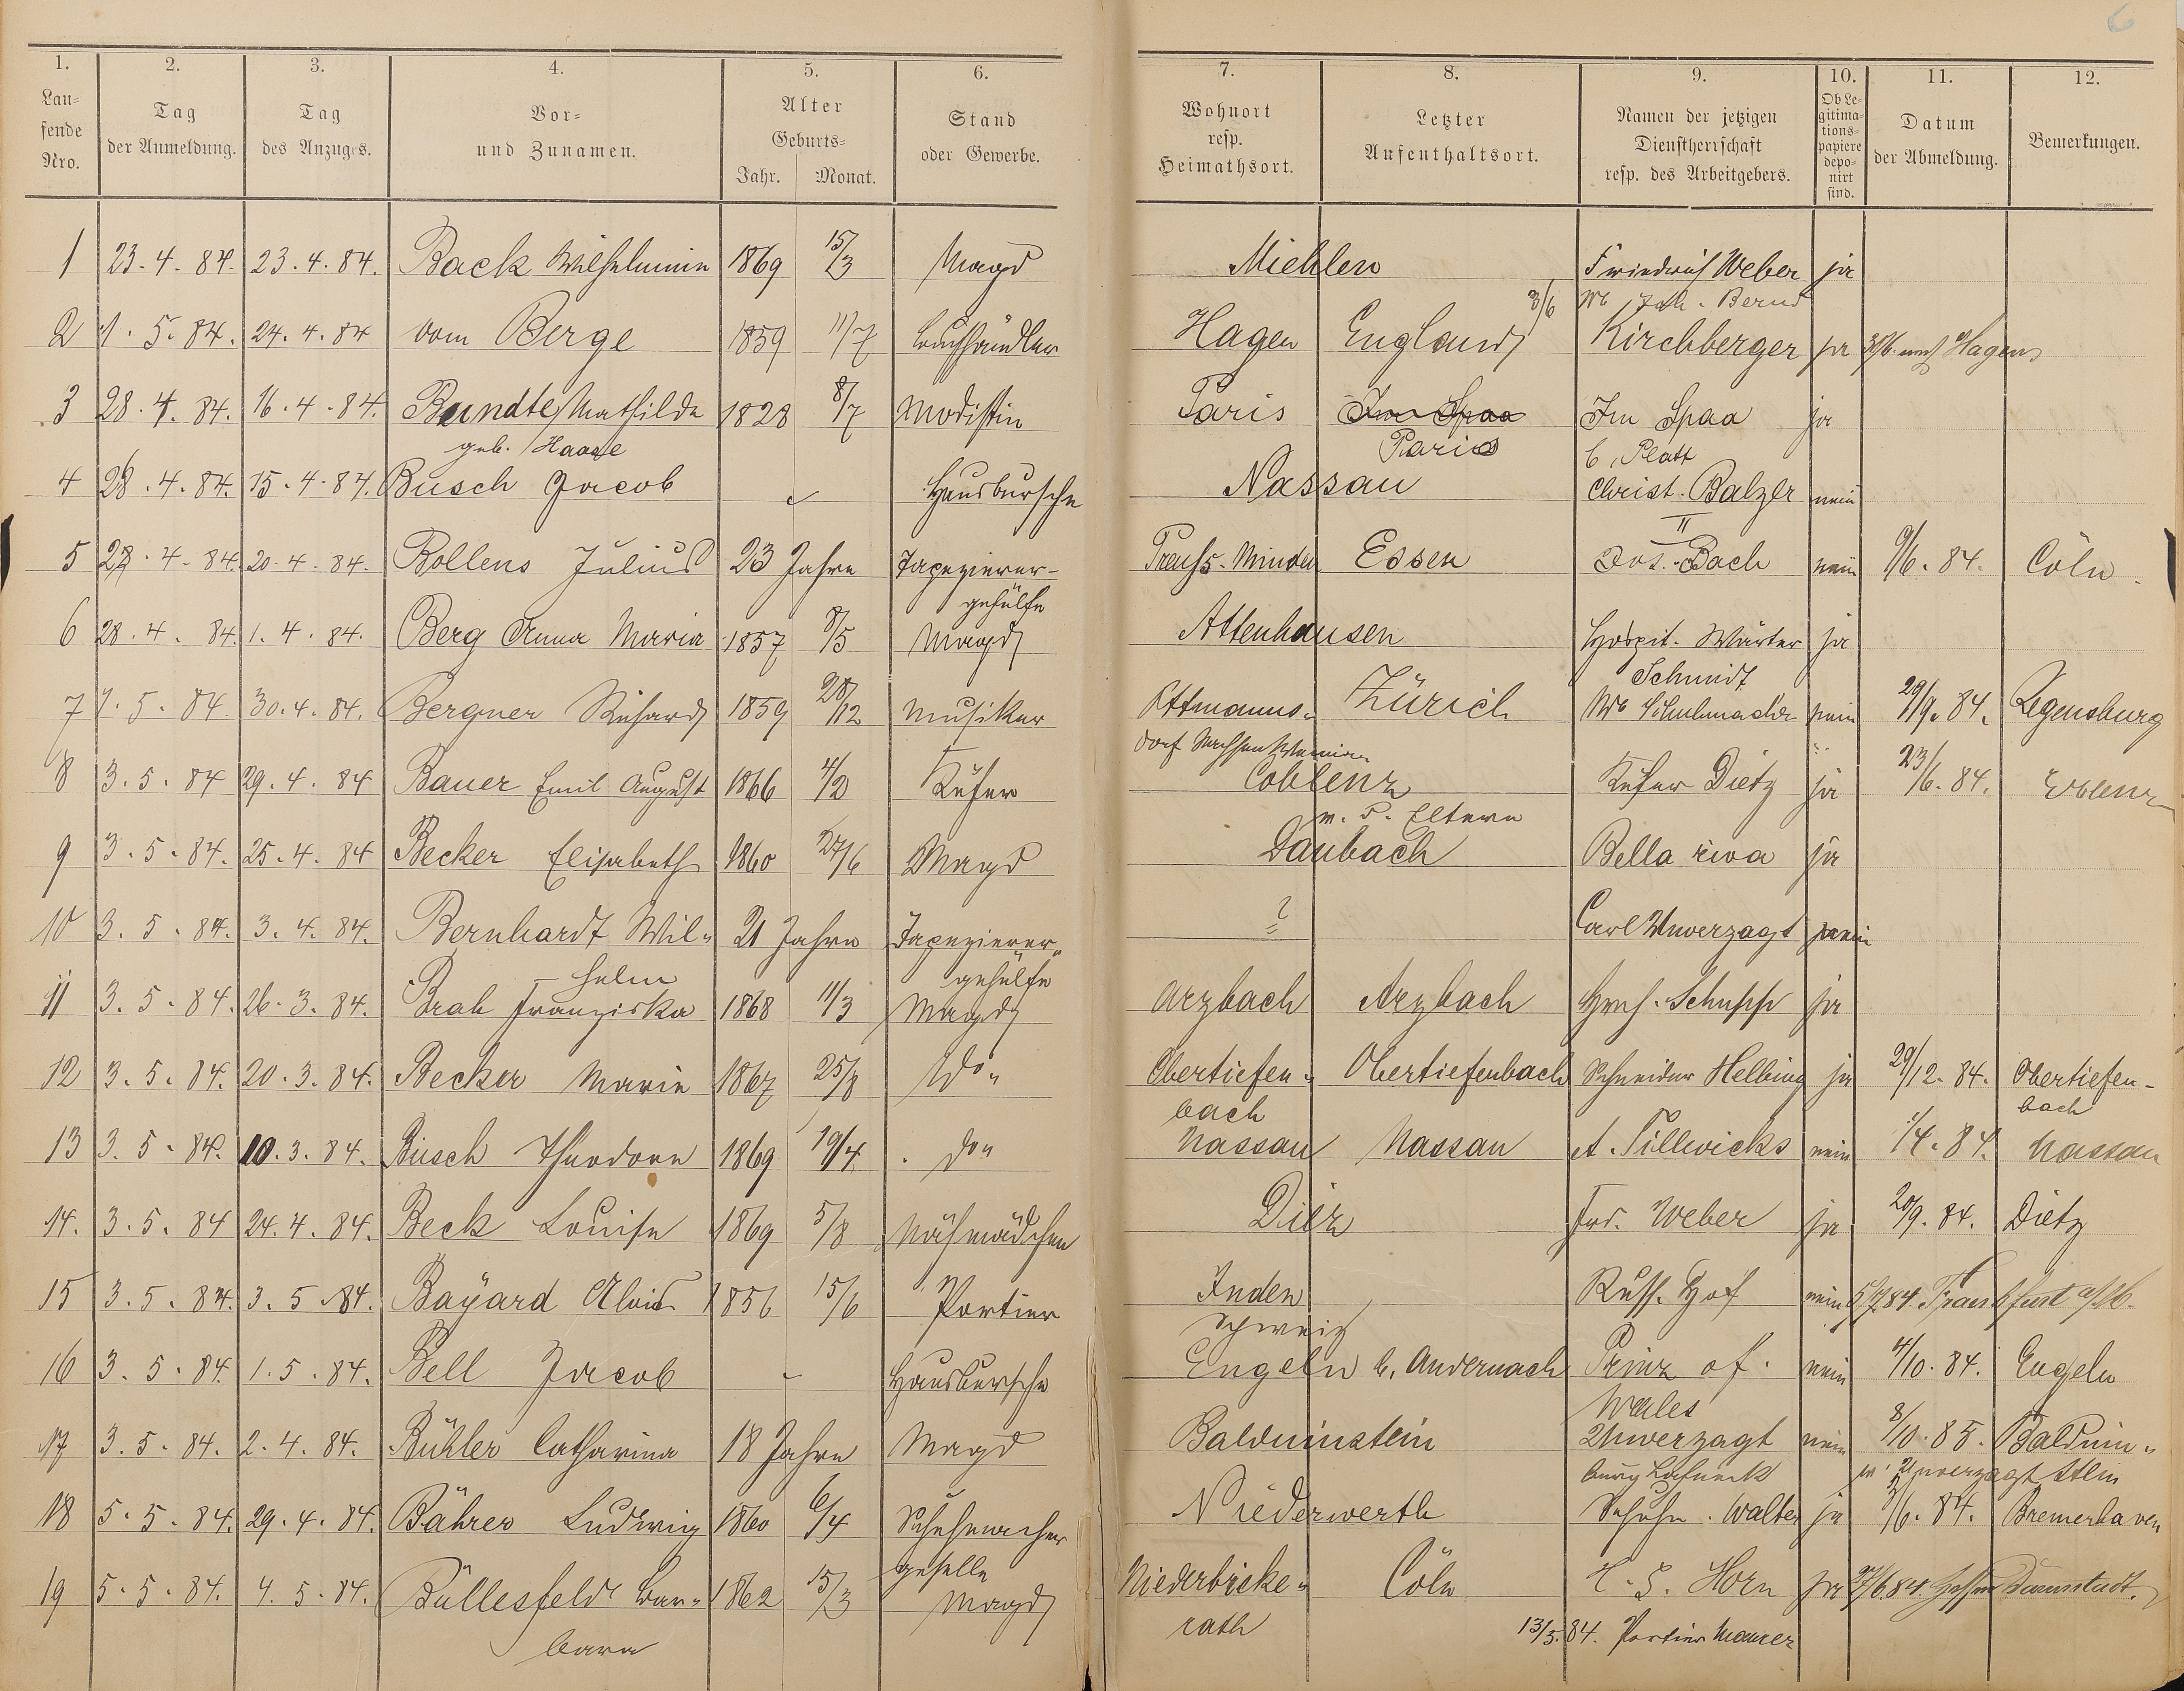 6
1. 2. 3. 4. 5. 6. 7. 8. 9. 10. 11. 12.
Lau-
fende
Nro.
Tag
der Anmeldung.
Tag
des Anzuges.
Vor-
und Zunamen.
Alter
Geburts-
Jahr. Monat.
Stand
oder Gewerbe.
Wohnort
resp.
Heimathsort.
Letzter
Aufenthaltsort.
Namen der jetzigen
Dienstherrschaft
resp. des Arbeitgebers.
Ob Le-
gitima-
tions-
papiere
depo-
nirt
sind.
Datum
der Abmeldung.
Bemerkungen.
1 23.4.84. 23.4.84. Back Wilhelmine 1869 15/3 Magd Miehlen Friedrich Weber ja
3/6 Ww Joh. Bernd
2 1.5.84. 24.4.84 vom Berge 1859 11/7 Buchhändler Hagen England Kirchberger ja 30/6. nach Hagen
3 28.4.84. 16.4.84. Bundte Mathilde 1828 8/7 Modistin Paris Im Spaa Im Spaa ja
geb. Haase Paris b. Platt
4 28.4.84. 15.4.84. Busch Jacob Hausbursche Nassau Christ. Balzer nein
II
5 28.4.84. 20.4.84. Bollens Julius 23 Jahre Tapezierer- Preuß. Minden Essen Jos. Bach nein 9/6.84. Cöln
gehülfe
6 28.4.84. 1.4.84. Berg Anna Maria 1857 8/5 Magd Attenhausen Hospit. Wärter ja
Schmidt
7 1.5.84. 30.4.84. Bergner Richard 1859 28/12 Musiker Ottmanns- Zürich Ww Schuhmacher nein 29/9.84. Regensburg
dorf Sachsen Meiningen
8 3.5.84 29.4.84 Bauer Emil August 1866 4/2 Küfer Coblenz Küfer Dietz ja 23/6.84. Coblenz
v. s. Eltern
9 3.5.84. 25.4.84 Becker Elisabeth 1860 27/6 Magd Daubach Bella riva ja
10 3.5.84. 3.4.84. Bernhardt Wil- 21 Jahre Tapezierer- ? Carl Unverzagt nein
helm gehülfe
11 3.5.84. 26.3.84. Brah Franziska 1868 11/3 Magd Arzbach Arzbach Hrch. Schupp ja
12 3.5.84. 20.3.84. Becker Marie 1867 25/8 do Obertiefen- Obertiefenbach Schneider Helbing ja 29/12.84. Obertiefen-
bach bach
13 3.5.84. 10.3.84. Busch Theodore 1869 19/4 do Nassau Nassau A. Tillwicks nein 1/4.84. Nassau
14. 3.5.84 24.4.84. Beck Louise 1869 5/8 Nähmädchen Diez Frd. Weber ja 20/9.84. Dietz
15 3.5.84. 3.5.84. Bayard Alois 1856 15/6 Portier Inden Russ. Hof nein 5/7 84 Frankfurt a/M.
Schweiz
16 3.5.84. 1.5.84. Bell Jacob - Hausbursche Engeln b. Andernach Prinz of nein 4/10.84. Engeln
Wales
17 3.5.84. 2.4.84. Bühler Catharina 18 Jahre Magd Balduinstein Unverzagt nein 8/10.85. Balduin-
Burg Lahneck v. Unverzagt stein
18 5.5.84. 29.4.84. Bährer Ludwig 1860 6/4 Schuhmacher Niederwerth Schuhm. Walter ja /6.84. Bremerhaven
geselle
19 5.5.84. 4.5.84. Büllesfeld Bar- 1862 15/3 Magd Niederbreke- Cöln H. S. Horn ja 27/6.84. Hessen Darmstadt.
bara rath 13/5.84. Portier Maurer